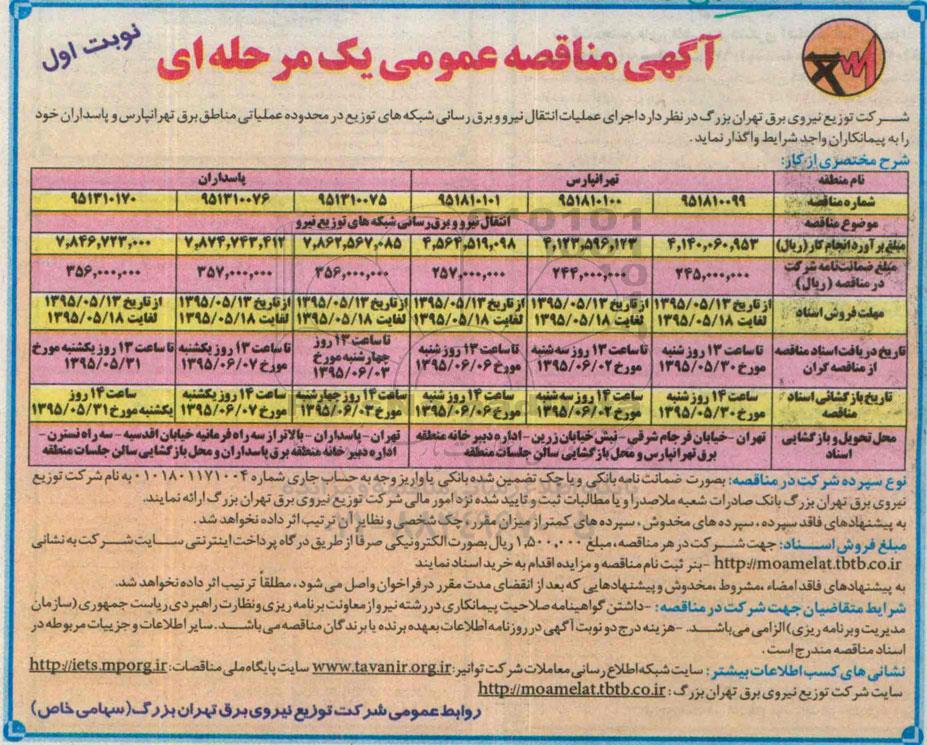 نوبت اول
آگهی مناقصه عمومی یک مرحله ای
شرکت توزیع نیروی برق تهران بزرگ در نظر دارد اجرای عملیات انتقال نیرو و برق رسانی شبکه های توزیع در محدوده عملیاتی مناطق برق تهرانپارس و پاسداران خود
را به پیمانکاران واجد شرایط واگذار نماید.
شرح مختصری از کار:
نام منطقه تهرانپارس پاسداران
شماره مناقصه ۹۵۱۸۱۰۰۹۹ ۹۵۱۸۱۰۱۰۰ ۹۵۱۸۱۰۱۰۱ ۹۵۱۳۱۰۰۷۵ ۹۵۱۳۱۰۰۷۶ ۹۵۱۳۱۰۱۷۰
موضوع مناقصه انتقال نیرو و برق رسانی شبکه های توزیع نیرو
مبلغ برآورد انجام کار (ریال) ۴,۱۴۰,۰۶۰,۹۵۳ ۴,۱۲۳,۵۹۶,۱۲۳ ۴,۵۶۴,۵۱۹,۰۹۸ ۷,۸۶۲,۵۶۷,۰۸۵ ۷,۸۷۴,۷۴۳,۴۱۲ ۷,۸۴۶,۷۲۳,۰۰۰
مبلغ ضمانت نامه شرکت
در مناقصه (ریال) ۲۴۵,۰۰۰,۰۰۰ ۲۴۴,۰۰۰,۰۰۰ ۲۵۷,۰۰۰,۰۰۰ ۳۵۶,۰۰۰,۰۰۰ ۳۵۷,۰۰۰,۰۰۰ ۳۵۶,۰۰۰,۰۰۰
مهلت فروش اسناد از تاریخ ۱۳۹۵/۰۵/۱۳ از تاریخ ۱۳۹۵/۰۵/۱۳ از تاریخ ۱۳۹۵/۰۵/۱۳ از تاریخ ۱۳۹۵/۰۵/۱۳ از تاریخ ۱۳۹۵/۰۵/۱۳ از تاریخ ۱۳۹۵/۰۵/۱۳
لغایت ۱۳۹۵/۰۵/۱۸ لغایت ۱۳۹۵/۰۵/۱۸ لغایت ۱۳۹۵/۰۵/۱۸ لغایت ۱۳۹۵/۰۵/۱۸ لغایت ۱۳۹۵/۰۵/۱۸ لغایت ۱۳۹۵/۰۵/۱۸
تاریخ دریافت اسناد مناقصه تا ساعت ۱۳ روز شنبه تا ساعت ۱۳ روز سه شنبه تا ساعت ۱۳ روز شنبه تا ساعت ۱۳ روز چهارشنبه تا ساعت ۱۳ روز یکشنبه تا ساعت ۱۳ روز یکشنبه مورخ
از مناقصه گران مورخ ۱۳۹۵/۰۵/۳۰ مورخ ۱۳۹۵/۰۶/۰۲ مورخ ۱۳۹۵/۰۶/۰۶ مورخ ۱۳۹۵/۰۶/۰۳ مورخ ۱۳۹۵/۰۶/۰۷ ۱۳۹۵/۰۵/۳۱
تاریخ بازگشائی اسناد ساعت ۱۴ روز شنبه ساعت ۱۴ روز سه شنبه ساعت ۱۴ روز شنبه ساعت ۱۴ روز چهارشنبه ساعت ۱۴ روز یکشنبه ساعت ۱۴ روز
مناقصه مورخ ۱۳۹۵/۰۵/۳۰ مورخ ۱۳۹۵/۰۶/۰۲ مورخ ۱۳۹۵/۰۶/۰۶ مورخ ۱۳۹۵/۰۶/۰۳ مورخ ۱۳۹۵/۰۶/۰۷ یکشنبه مورخ ۱۳۹۵/۰۵/۳۱
محل تحویل و بازگشایی تهران - خیابان فرجام شرقی - نبش خیابان زرین - اداره دبیرخانه منطقه تهران - پاسداران - بالاتر از سه راه فرمانیه خیابان اقدسیه - سه راه نسترن -
اسناد برق تهرانپارس و محل بازگشایی سالن جلسات منطقه اداره دبیرخانه منطقه برق پاسداران و محل بازگشایی سالن جلسات منطقه
نوع سپرده شرکت در مناقصه: بصورت ضمانت نامه بانکی و یا چک تضمین شده بانکی یا واریز وجه به حساب جاری شماره ۰۱۰۱۸۰۱۱۷۱۰۰۴ به نام شرکت توزیع
نیروی برق تهران بزرگ بانک صادرات شعبه ملاصدرا و یا مطالبات ثبت و تایید شده نزد امور مالی شرکت توزیع نیروی برق تهران بزرگ ارائه نمایند.
به پیشنهادهای فاقد سپرده، سپرده های مخدوش، سپرده های کمتر از میزان مقرر، چک شخصی و نظایر آن ترتیب اثر داده نخواهد شد.
مبلغ فروش اسناد: جهت شرکت در هر مناقصه، مبلغ ۱,۵۰۰,۰۰۰ ریال بصورت الکترونیکی صرفا از طریق درگاه پرداخت اینترنتی سایت شرکت به نشانی
http://moamelat.tbtb.co.ir -بنر ثبت نام مناقصه و مزایده اقدام به خرید اسناد نمایند
به پیشنهادهای فاقد امضاء، مشروط، مخدوش و پیشنهادهایی که بعد از انقضای مدت مقرر در فراخوان واصل می شود، مطلقاً ترتیب اثر داده نخواهد شد.
شرایط متقاضیان جهت شرکت در مناقصه: -داشتن گواهینامه صلاحیت پیمانکاری در رشته نیرو از معاونت برنامه ریزی و نظارت راهبردی ریاست جمهوری (سازمان
مدیریت و برنامه ریزی) الزامی می باشد. -هزینه درج دو نوبت آگهی در روزنامه اطلاعات بعهده برنده یا برندگان مناقصه می باشد. سایر اطلاعات و جزییات مربوطه در
اسناد مناقصه مندرج است.
نشانی های کسب اطلاعات بیشتر: سایت شبکه اطلاع رسانی معاملات شرکت توانیر: www.tavanir.org.ir سایت پایگاه ملی مناقصات: http://iets.mporg.ir
سایت شرکت توزیع نیروی برق تهران بزرگ: http://moamelat.tbtb.co.ir
روابط عمومی شرکت توزیع نیروی برق تهران بزرگ (سهامی خاص)